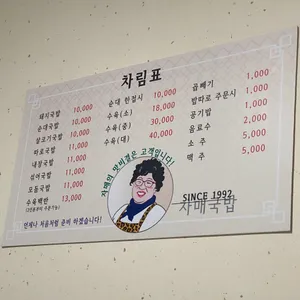 차림표
돼지국밥 10,000
순대국밥 10,000
살코기국밥 10,000
따로국밥 11,000
내장국밥 11,000
섞어국밥 11,000
모듬국밥 11,000
수육백반 13,000
순대 한접시 10,000
수육(소) 18,000
수육(중) 30,000
수육(대) 40,000
곱빼기 1,000
밥따로 주문시 1,000
공기밥 1,000
음료수 2,000
소 주 5,000
맥 주 5,000
자매의 맛비결은 고객입니다!
언제나 처음처럼 준비 하겠습니다!
SINCE 1992
자매국밥